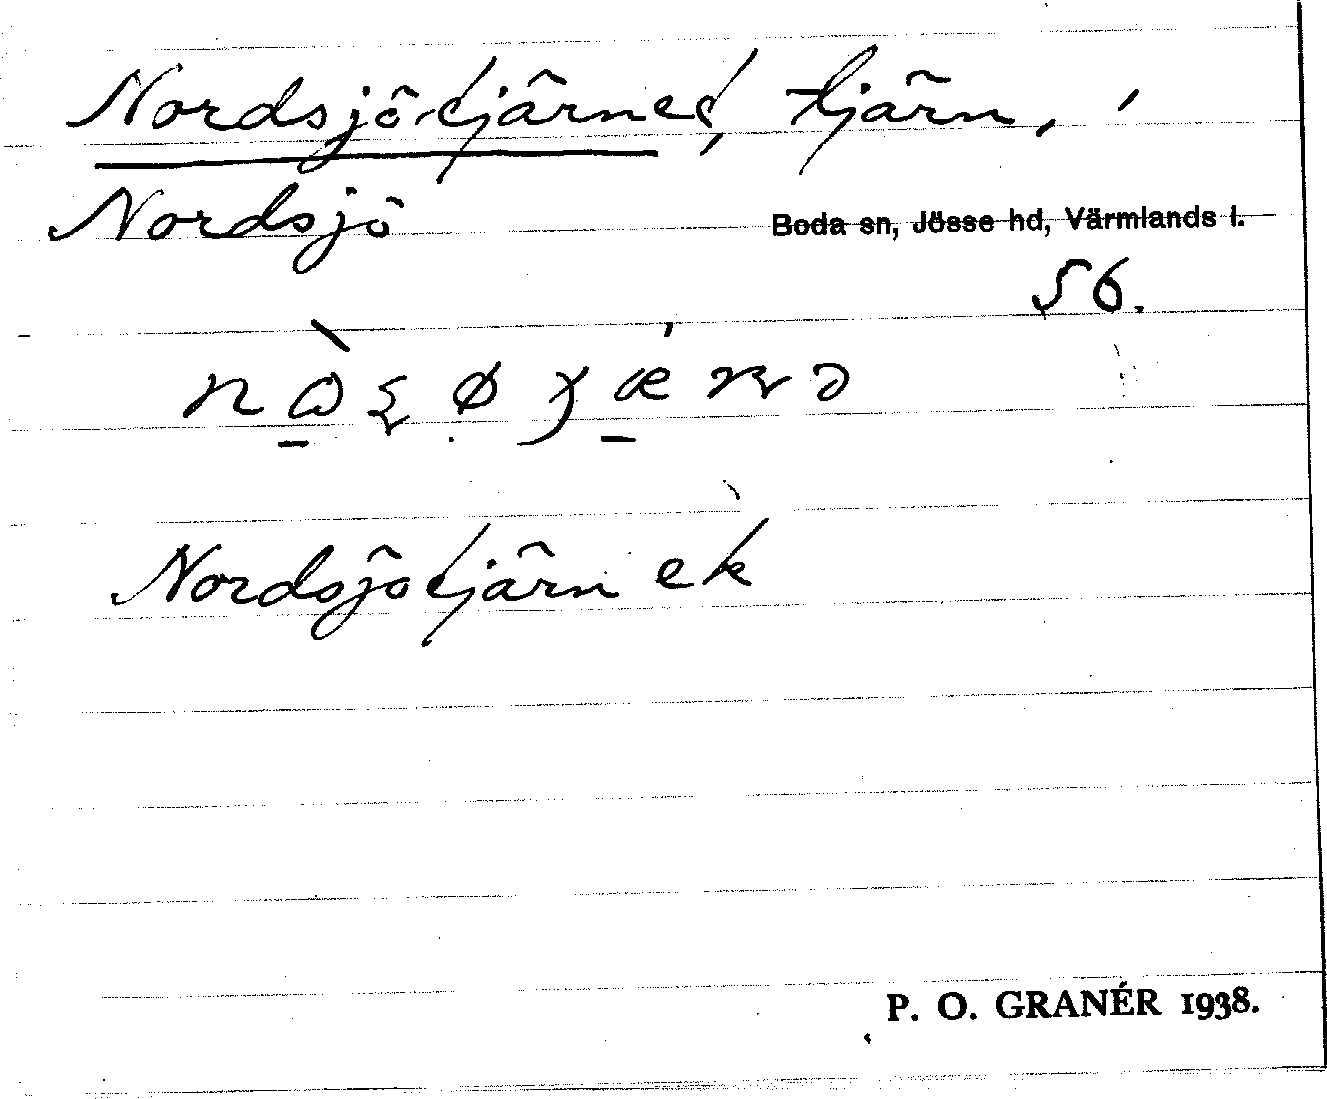 Nordsjötjärnet, tjärn,
Nordsjö
Boda sn, Jösse hd, Värmlands l.
56.
Nordsjötjärn ek
P. O. GRANÉR 1938.